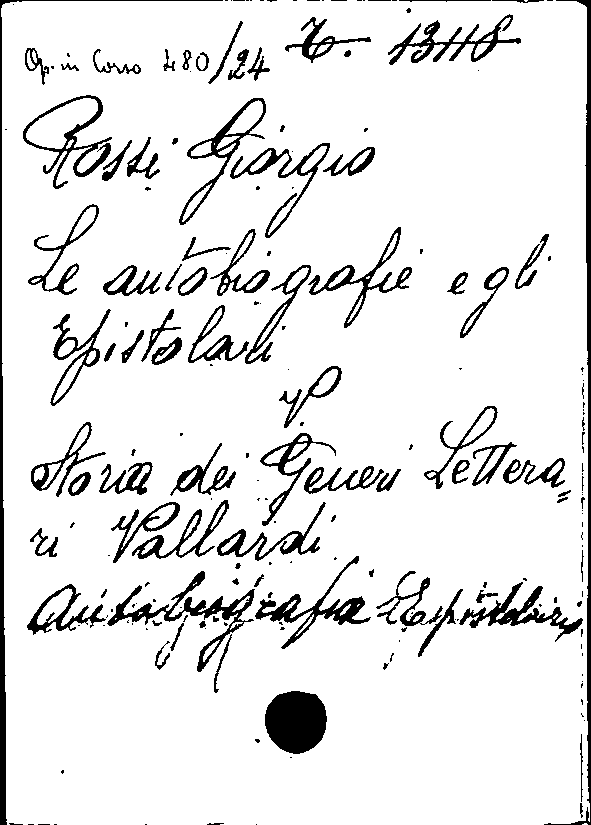 Op. in Corso 480/24 T. 13118
Rossi Giorgio
Le autobiografie e gli
Epistolari
V
Storia dei Generi Lettera=
ri Vallardi
Autobiografia Epistolario